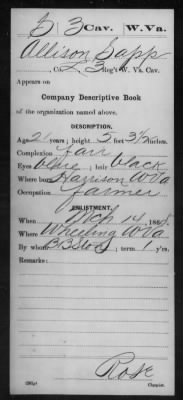 S 3 Cav. W. Va.
Allison Sapp
, Co. L, 3 Reg't W. Va. Cav.
Appears on
Company Descriptive Book
of the organization named above.
DESCRIPTION.
Age 21 years; height 5 feet 3½ inches.
Complexion Fair
Eyes Blue; hair black
Where born Harrison W Va
Occupation farmer
ENLISTMENT.
When Mch 14, 1865.
Where Wheeling W Va
By whom ; term 1 y'rs.
Remarks:
Rose
Copyist.